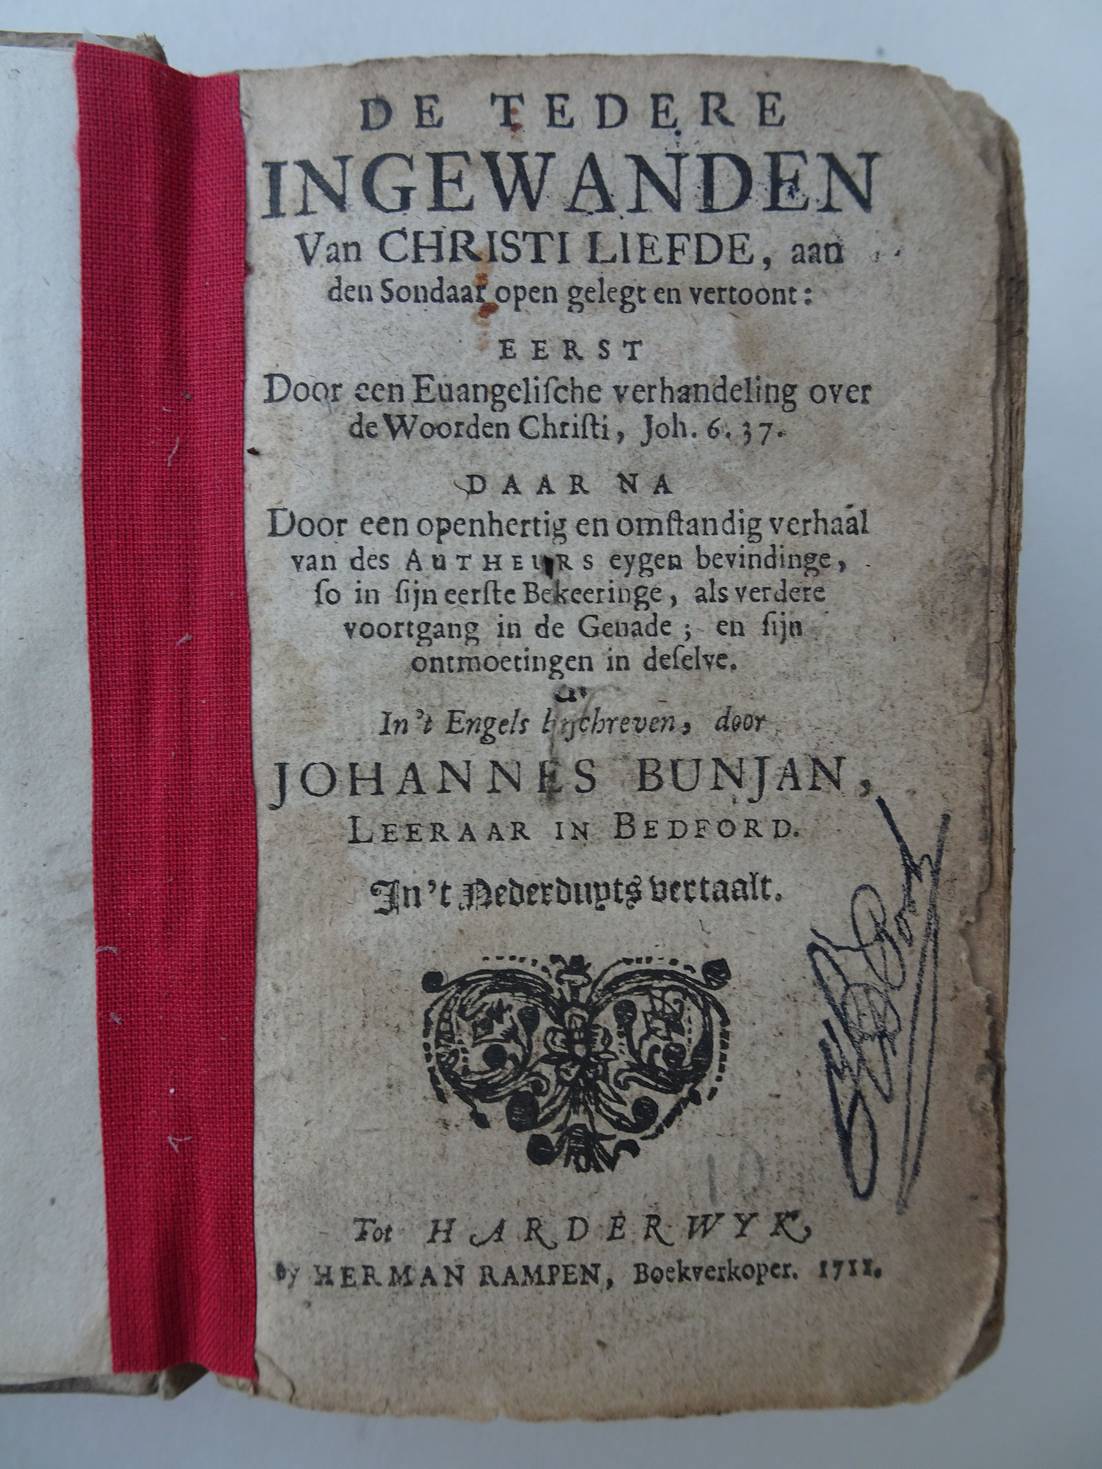 DE TEDERE
INGEWANDEN
Van CHRISTI LIEFDE, aan
den Sondaar open gelegt en vertoont:
EERST
Door een Euangeliſche verhandeling over
de Woorden Chriſti, Joh. 6. 37.
DAAR NA
Door een openhertig en omſtandig verhaal
van des AUTHEURS eygen bevindinge,
ſo in ſijn eerſte Bekeeringe, als verdere
voortgang in de Genade; en ſijn
ontmoetingen in deſelve.
In 't Engels beſchreven, door
JOHANNES BUNJAN,
LEERAAR IN BEDFORD.
In 't Nederduyts vertaalt.
Tot HARDERWYK,
by HERMAN RAMPEN, Boekverkoper. 1711.